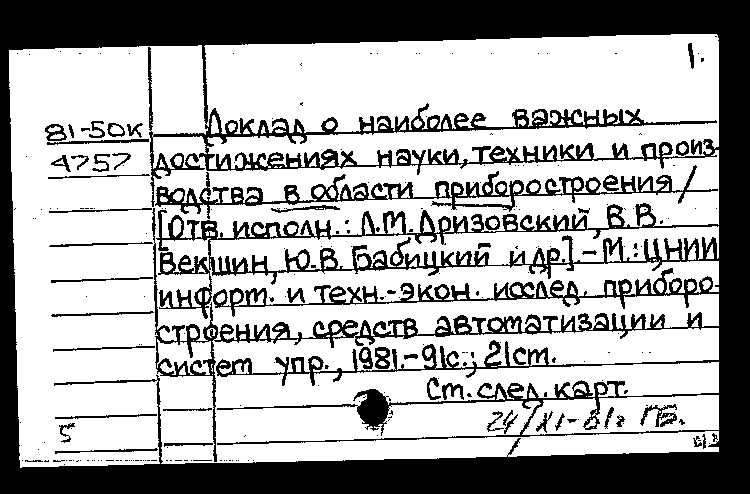 1.
81-50К Доклад о наиболее важных
4757 достижениях науки, техники и произ-
водства в области приборостроения /
[Отв. исполн.: Л.М. Дризовский, В.В.
Векшин, Ю.В. Бабицкий и др.] - М.: ЦНИИ
информ. и техн.-экон. исслед. приборо-
строения, средств автоматизации и
систем упр., 1981.- 91с.; 21см.
См. след. карт.
5 24/XI-81г ГБ.